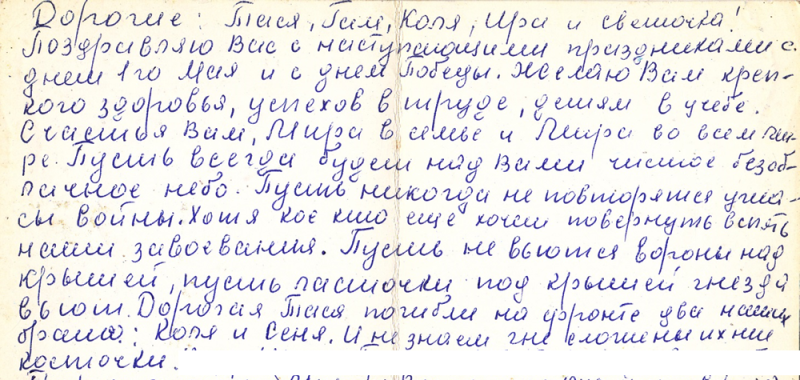 Дорогие: Тася, Гам, Коля, Ира и светочка!
Поздравляю Вас с наступающими праздниками с.
днем 1го Мая и с днем Победы. Желаю Вам креп-
кого здоровья, успехов в труде, детям в учебе.
Счастья Вам, Мира в семье и Мира во всем ми-
ре. Пусть всегда будет над Вами чистое безоб-
лачное небо. Пусть никогда не повторятся ужа-
сы войны. Хотя кое кто еще хочет повернуть вспять
наши завоевания. Пусть не вьются вороны над
крышей, пусть ласточки под крышей гнезда
вьют. Дорогая Тася погибли на фронте два наших
брата: Коля и Сеня. И не знаем где сложены их
косточки.